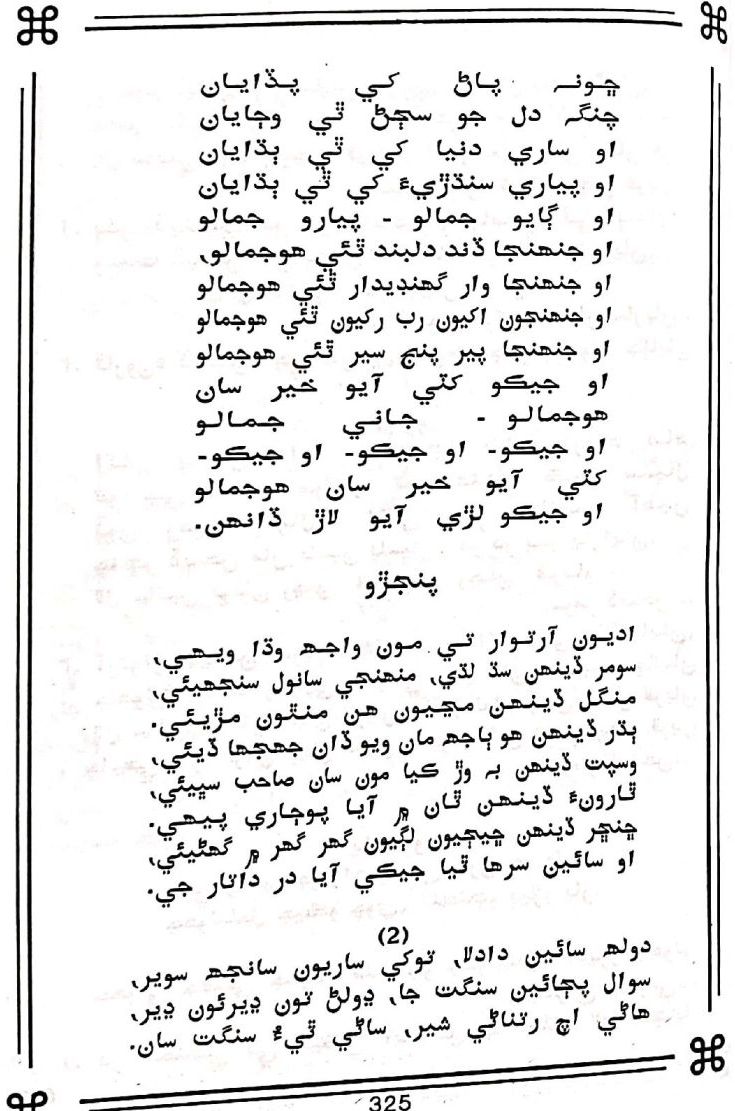 ڇونہ پاڻ کي پڏايان
چنگہ دل جو سڄڻ ٿي وڄايان
او ساري دنيا کي ٿي ٻڌايان
او پياري سنڌڙيءَ کي ٿي ٻڌايان
او ڳايو جمالو - پيارو جمالو
او جنھنجا ڏند دلبند ٿئي ھوجمالو،
او جنھنجا وار گھنڊيدار ٿئي ھوجمالو
او جنھنجون اکيون رب رکيون ٿئي ھوجمالو
او جنھنجا پير پنج سير ٿئي ھوجمالو
او جيڪو کٽي آيو خير سان
ھوجمالو - جاني جمالو
او جيڪو- او جيڪو- او جيڪو-
کٽي آيو خير سان ھوجمالو
او جيڪو لڙي آيو لاڙ ڏانھن.
پنجڙو
اديون آرتوار تي مون واجھ وڌا ويھي،
سومر ڏينھن سڌ لڌي، منھنجي سانول سنجھيئي،
منگل ڏينھن مڃيون ھن منٿون مڙيئي.
ٻڌر ڏينھن ھو ٻاجھ مان ويو ڏان جھجھا ڏيئي،
وسپت ڏينھن بہ وڙ ڪيا مون سان صاحب سڀيئي،
ٿارونءَ ڏينھن ٿان ۾ آيا پوڄاري پيھي.
ڇنڇر ڏينھن ڇيڄيون لڳيون گھر گھر ۾ گھڻيئي،
او سائين سرھا ٿيا جيڪي آيا در داتار جي.
(2)
دولھ سائين دادلا، توکي ساريون سانجھ سوير،
سوال پڄائين سنگت جا، ڍولڻ تون ڍيرئون ڍير،
ھاڻي اچ رتناڻي شير، ساڻي ٿيءُ سنگت سان.
325